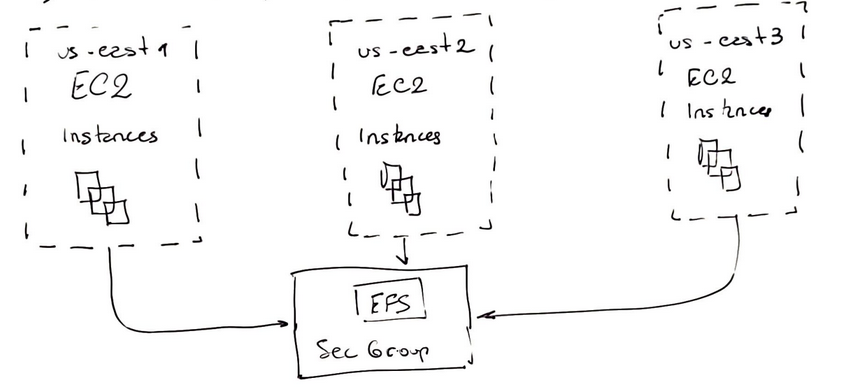 us-east1
EC2
Instances
us-east2
EC2
Instances
us-east3
EC2
Instances
EFS
Sec Group